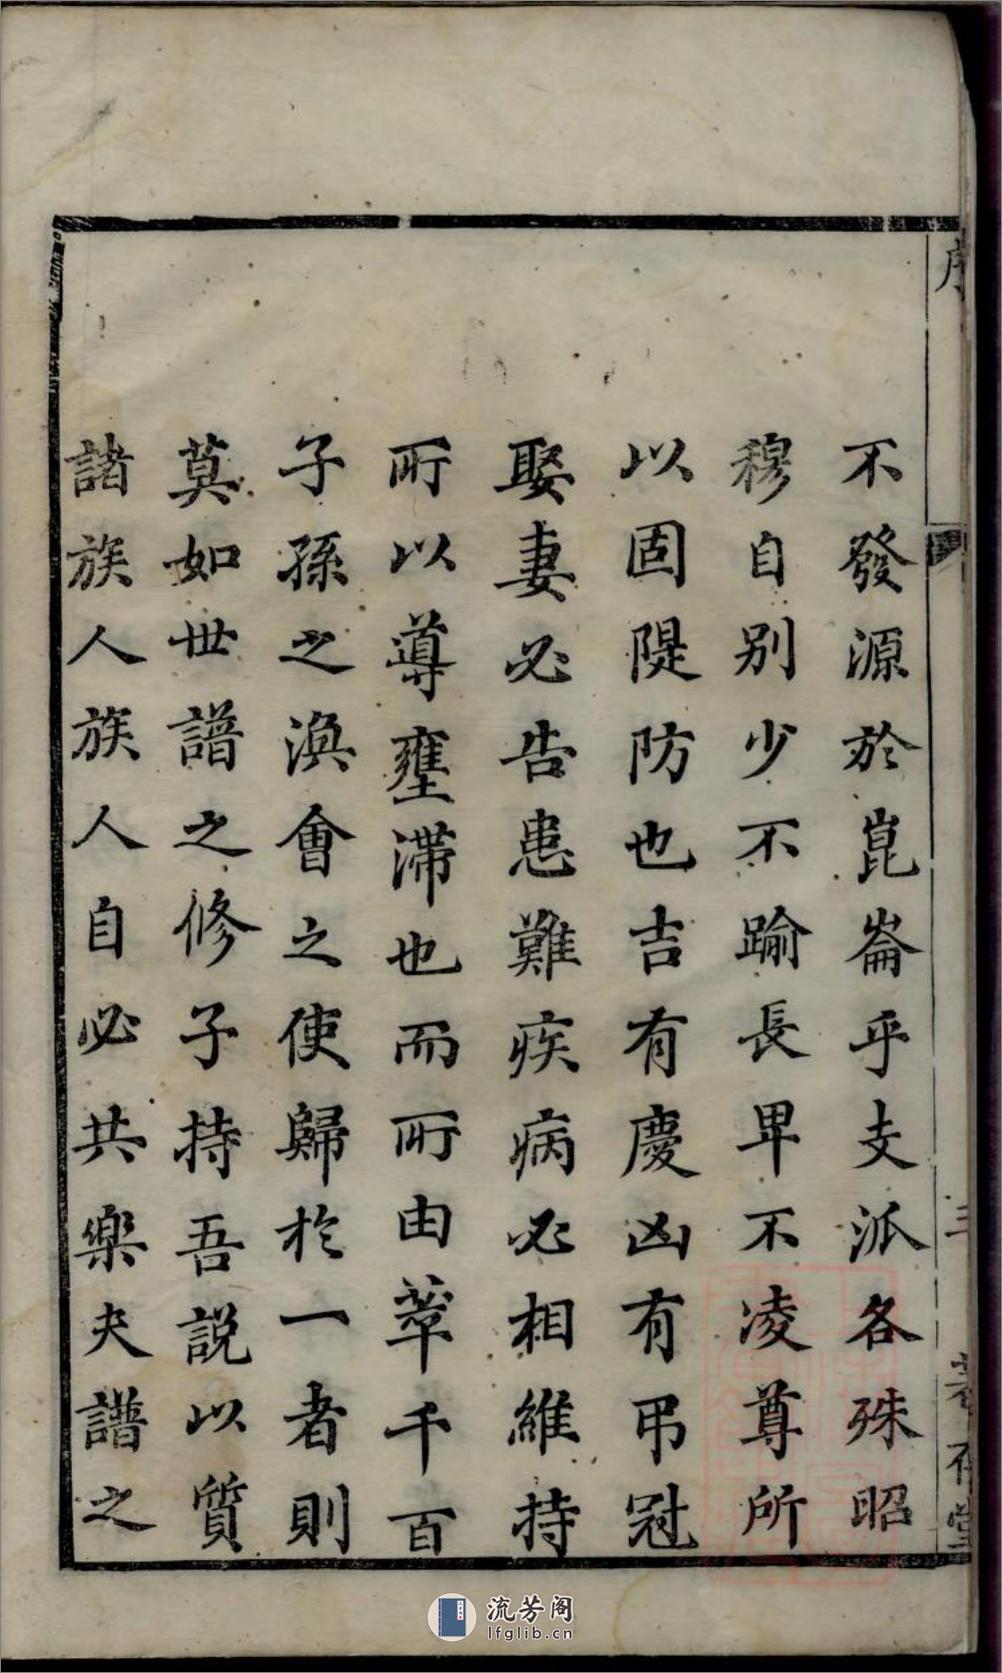 序
三
存
不發源於崑崙乎支派各殊昭
穆自別少不踰長卑不凌尊所
以固隄防也吉有慶凶有弔冠
娶妻必告患難疾病必相維持
所以導壅滯也而所由萃千百
子孫之渙會之使歸於一者則
莫如世譜之修子持吾說以質
諸族人族人自必共樂夫譜之
流芳阁
lfglib.cn